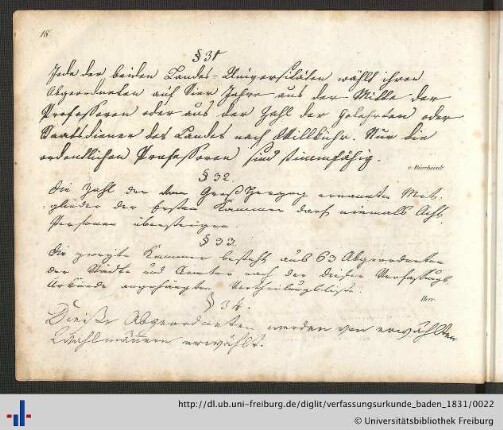 18
§ 31
Jede der beiden Landes-Universitäten wählt ihren
Abgeordneten auf vier Jahre aus der Mitte der
Professoren oder aus der Zahl der Gelehrten oder
Staatsdiener des Landes nach Willkühr. Nur die
ordentlichen Professoren sind stimmfähig.
§ 32.
Die Zahl der vom Großherzog ernannten Mit-
glieder der ersten Kammer darf niemals Acht
Personen übersteigen.
§ 33.
Die zweyte Kammer besteht aus 63 Abgeordneten
der Städte und Aemter nach der dieser Verfassungs
Urkunde angehängten Vertheilungsliste.
Herr.
§ 34.
Diese Abgeordneten werden von erwählten
Wahlmännern erwählt.
http://dl.ub.uni-freiburg.de/diglit/verfassungsurkunde_baden_1831/0022
© Universitätsbibliothek Freiburg